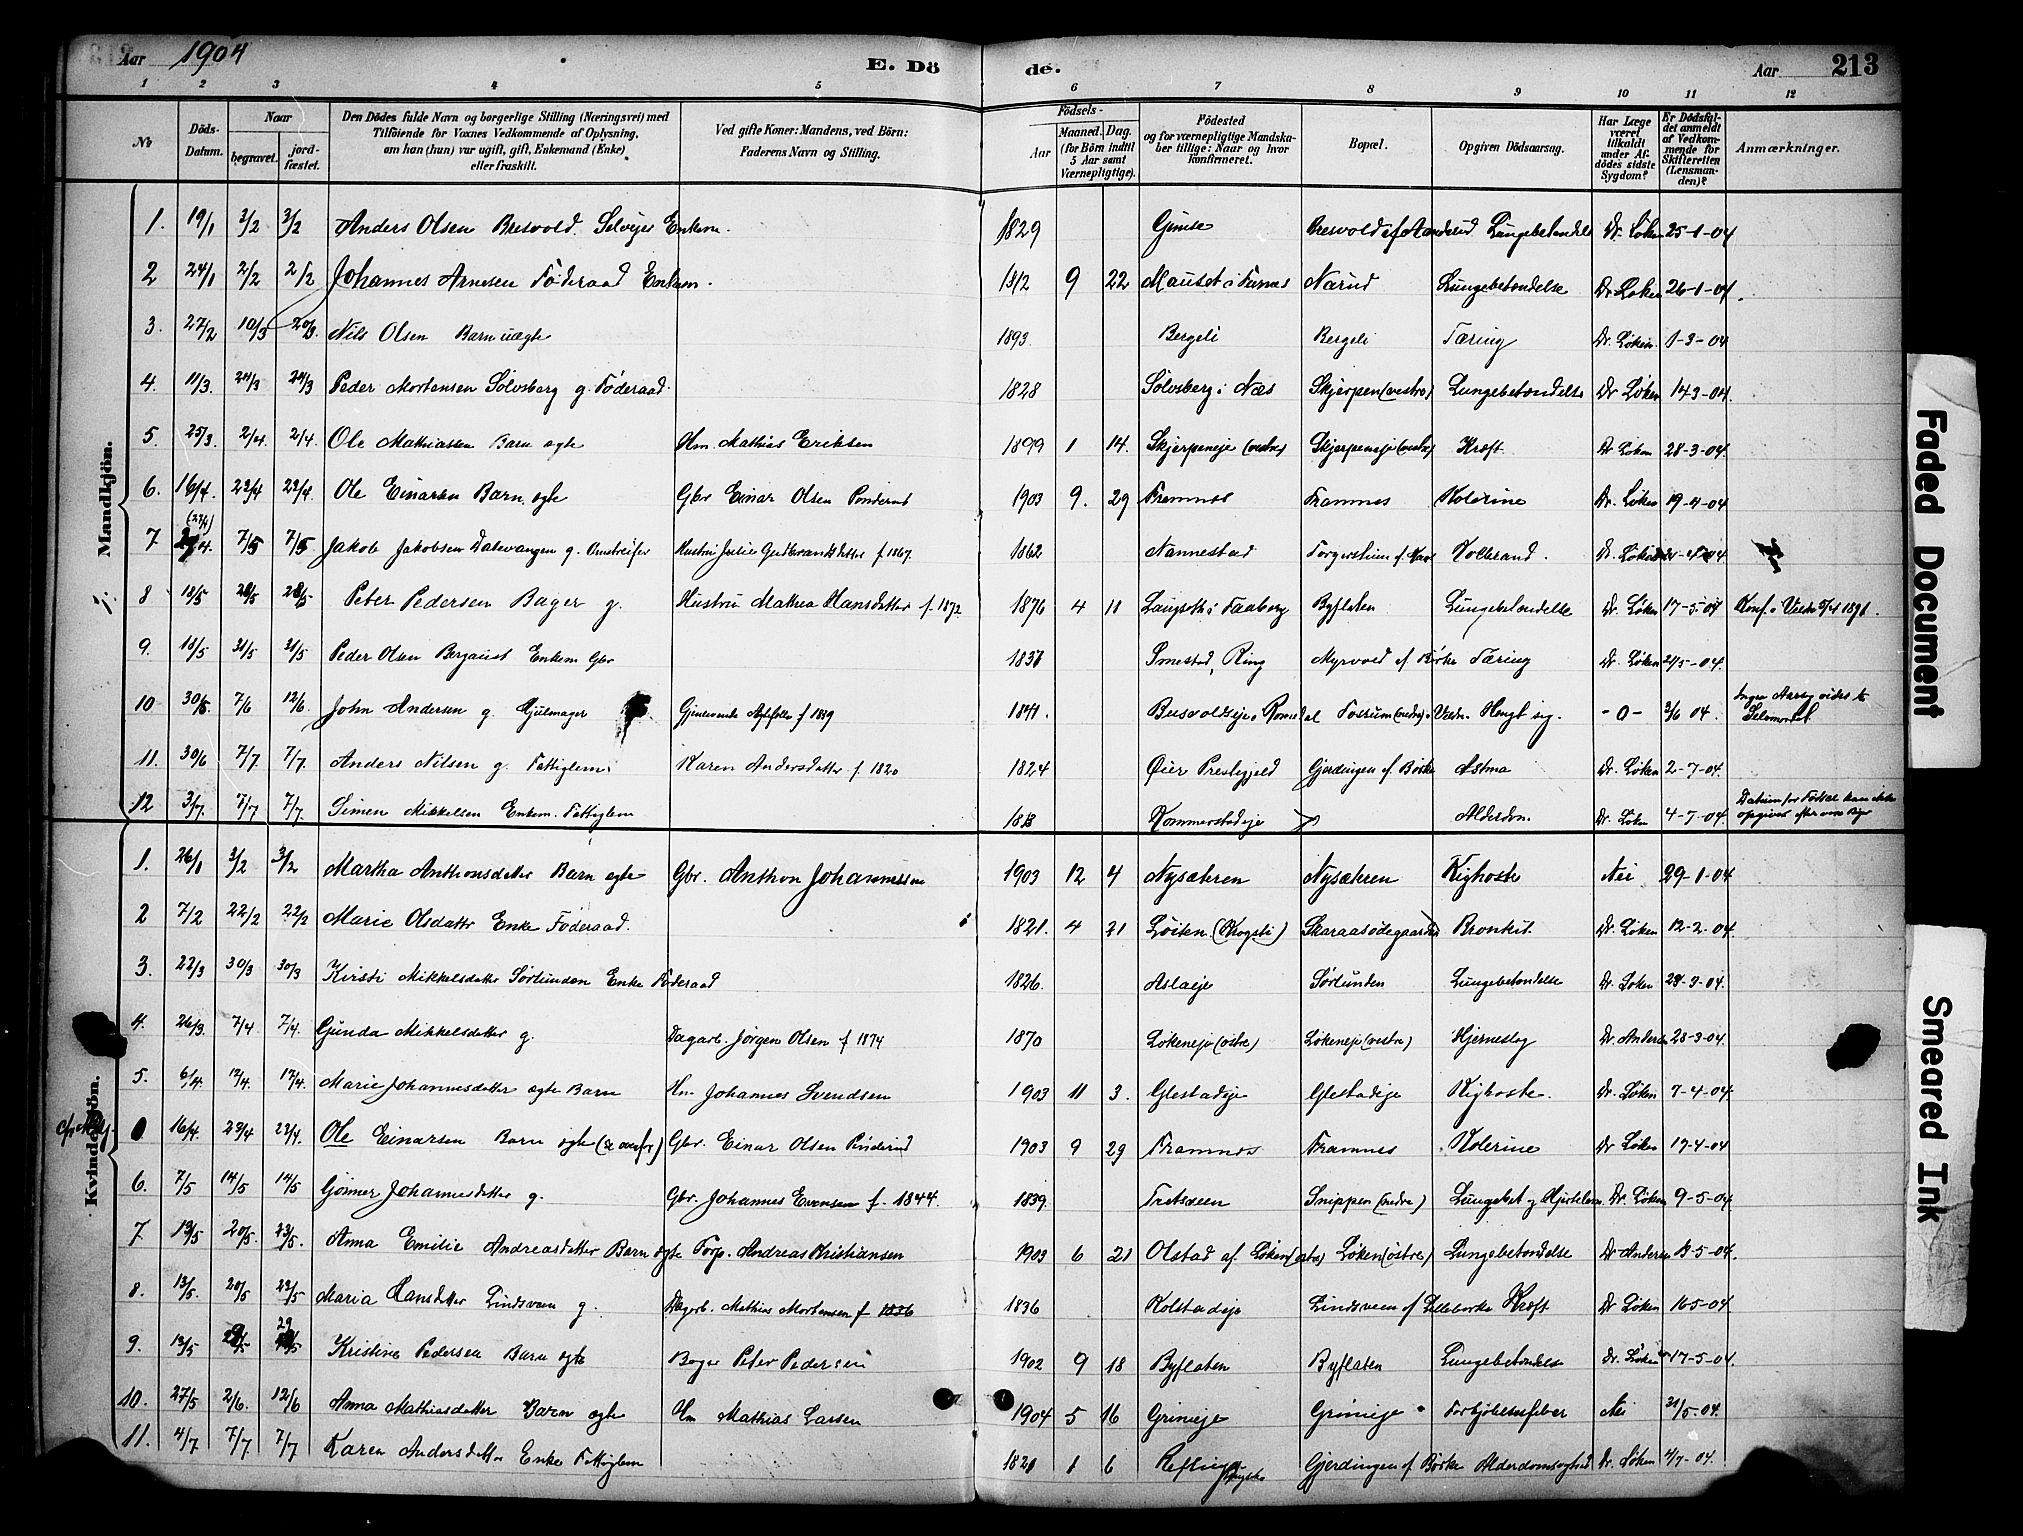 Aar 1904 E. Döde. Aar 213
1 2 3 4 5 6 7 8 9 10 11 12
No Döds-Datum. Naar begravet. jordfæstet. Den Dödes fulde Navn og borgerlige Stilling (Næringsvei) med Tilföiende for Voxnes Vedkommende af Oplysning, om han (hun) var ugift, gift, Enkemand (Enke) eller fraskilt. Ved gifte Koner: Mandens, ved Börn: Faderens Navn og Stilling. Födsels- Aar Maaned. Dag. (for Börn indtil 5 Aar samt Værnepligtige). Födested og for værnepligtige Mandskaber tillige: Naar og hvor konfirmeret. Bopæl. Opgiven Dödsaarsag. Har Læge været tilkaldt under Afdödes sidste Sygdom? Er Dödsfaldet anmeldt af Vedkommende for Skifteretten (Lensmanden)? Anmærkninger.
Mandkjön.
1. 19/1 3/2 3/2 Anders Olsen Bresvold. Selveier Enkem. 1829 Gimse Lungebetændelse Dr. Löken 25-1-04
2 24/1 2/2 2/2 Johannes Arnesen Föderaad Enkem. 1812 9 22 Mauset i Furnes Narud Lungebetændelse Dr Löken 26-1-04.
3. 27/2 10/3 20/3 Nils Olsen Barn uægte 1893 Bergeli Bergeli Tæring Dr. Löken. 1-3-04
4. 11/3. 24/3 24/3 Peder Mortensen Sölvsberg g. Föderaad. 1828 Sölvsberg i Næs Skjerpen (vestre) Lungebetændelse Dr Löken 14-3-04.
5. 25/3. 2/4. 2/4. Ole Mathiassen Barn ægte Hm. Mathias Eriksen 1899 1 14. Skjerpeneje (vestre) Skjerpeneje (vestre) Kræft Dr Löken 28-3-04.
6. 16/4. 22/4 22/4. Ole Einarsen Barn ægte Gbr Einar Olsen Pinderud 1903 9. 29 Framnes Framnes Kolerine Dr. Löken 19-4-04
7. (27/4) 7/5 7/5 Jakob Jakobsen Dalevangen g. Omstreifer Hustru Julie Gudbrandsdatter f 1867. 1862 Nannestad Koldbrand. Dr. Löken
8 18/5 28/5 28/5 Peter Pedersen Bager g. Hustru Mathea Hansdatter f. 1872. 1876 4 11 Byflaten Lungebetændelse Dr. Löken 17-5-04 Konf. i 1891.
9. 18/5 31/5 31/5 Peder Olsen Bergaust Enkem Gbr 1837 Smestad, Ring Myrvold af Börke Tæring Dr. Löken 21/5-04.
10 30/5 7/6 12/6. John Andersen g. Hjulmager f 1839 1841. Hængt sig. -0- 3/6 04. Selvmordet
11. 30/6 7/7. 7/7. Anders Nilsen g. Fattiglem. Karen Andersdatter f 1820 1824 Öier Prestegjeld Gjerdingen af Börke Astma Dr. Löken 2-7-04.
12 3/7. 7/7 7/7. Simen Mikkelsen Enkem. Fattiglem Kommerstadeje Alderdom. Dr. Löken 4-7-04. Datum for Födsel kan ikke opgives
Kvindekjön.
1. 26/1 3/2 3/2 Martha Anthonsdatter Barn ægte Gbr. Anthon Johannessen 1903 12 4 Nysæteren Nysæteren Kighoste Nei 29-1-04
2 7/2 22/2 22/2 Marie Olsdatter Enke Föderaad. 1821. 4 21 Löiten (Skogsti) Skaraasödegaarden Bronkit. Dr. Löken 12-2-04.
3. 22/3 30/3 30/3 Kirsti Mikkelsdatter Sörlunden Enke Föderaad 1826. Aslaeje Sörlunden Lungebetændelse Dr. Löken -3-04.
4. 26/3. 7/4 7/4. Gunda Mikkelsdatter g. Dagarb. Jörgen Olsen f 1874 1870 Lökeneje (östre) Lökeneje (vestre) Hjernesyg Dr. Andersen 28-3-04.
5. 6/4. 12/4. 12/4. Marie Johannesdatter ægte Barn Hm Johannes Svendsen 1903 11 3. Glestadeje Glestadeje Kighoste. Dr. Löken 7-4-04
16/4. 22/4 22/4. Ole Einarsen Barn ægte (se ovenfor) Gbr. Einar Olsen Pinderud 1903 9 29 Framnes Framnes Kolerine Dr Löken 19-4-04
6. 7/5 14/5 14/5 Gjönner Johannesdatter g. Gbr. Johannes Evensen f. 1844. 1839. Tretsveen Snippen (nedre) Lungebet. og Hjertelam Dr. Löken 9-5-04
7 13/5 20/5. 23/5. Anna Emilie Andreasdatter Barn ægte Torp. Andreas Kristiansen 1903 6 21 Olstad af. Löken (östre) Löken (östre) Lungebetændelse Dr Andersen 13-5-04.
8. 13/5. 20/5 23/5 Maria Hansdatter Lindsveen g. Dagarb. Mathias Mortensen f 1836 1836 Kolstadeje Lindsveen af Lilleborke Kræft Dr Löken 16-5-04
9 13/5 29/5 Kristine Pedersen Barn ægte Bager Peter Pedersen 1902 9 18 Byflaten Byflaten Lungebetændelse Dr. Löken 17-5-04
10. 27/5 2/6. 12/6 Anna Mathiasdatter Barn ægte Hm Mathias Larsen 1904 5 16 Grimeje Grimeje Forkjölelsesfeber Nei 31/5-04.
11. 4/7 7/7 7/7 Karen Andersdatter Enke Fattiglem 1821 1 6 Gjerdingen af Börke Alderdomssvaghed Dr. Löken 4/7-04.
Faded Document
Smeared Ink